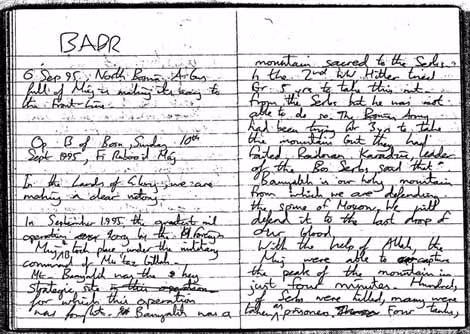 BADR
6 Sep 95, North Bosnia. A bus
full of Muj is making its way to
the front-line.
Op. B of Bosn, Sunday 10th
Sept 1995,
In the Lands of Glory, we are
making a clear victory.
In September 1995 the greatest mil
operation
Muj took place under the military
command of
Mt. Banyaluk was the key
strategic site
for which this operation
was fought. Banyaluk was a
mountain sacred to the Serbs.
In the 2nd WW Hitler tried
for 5 yrs to take this mt.
from the Serbs but he was not
able to do so. The Bosnia Army
had been trying for 3 yrs to take
the mountain but they had
failed. Radovan Karadzic, leader
of the Bos Serbs said that "
Banyaluk is our holy mountain
from which we are defending
the spine of We will
defend it to the last drop of
our blood.
With the help of Allah, the
Muj were able to capture
the peak of the mountain in
just four minutes. Hundreds
of Serbs were killed, many were
taken as prisoners. Four tanks,